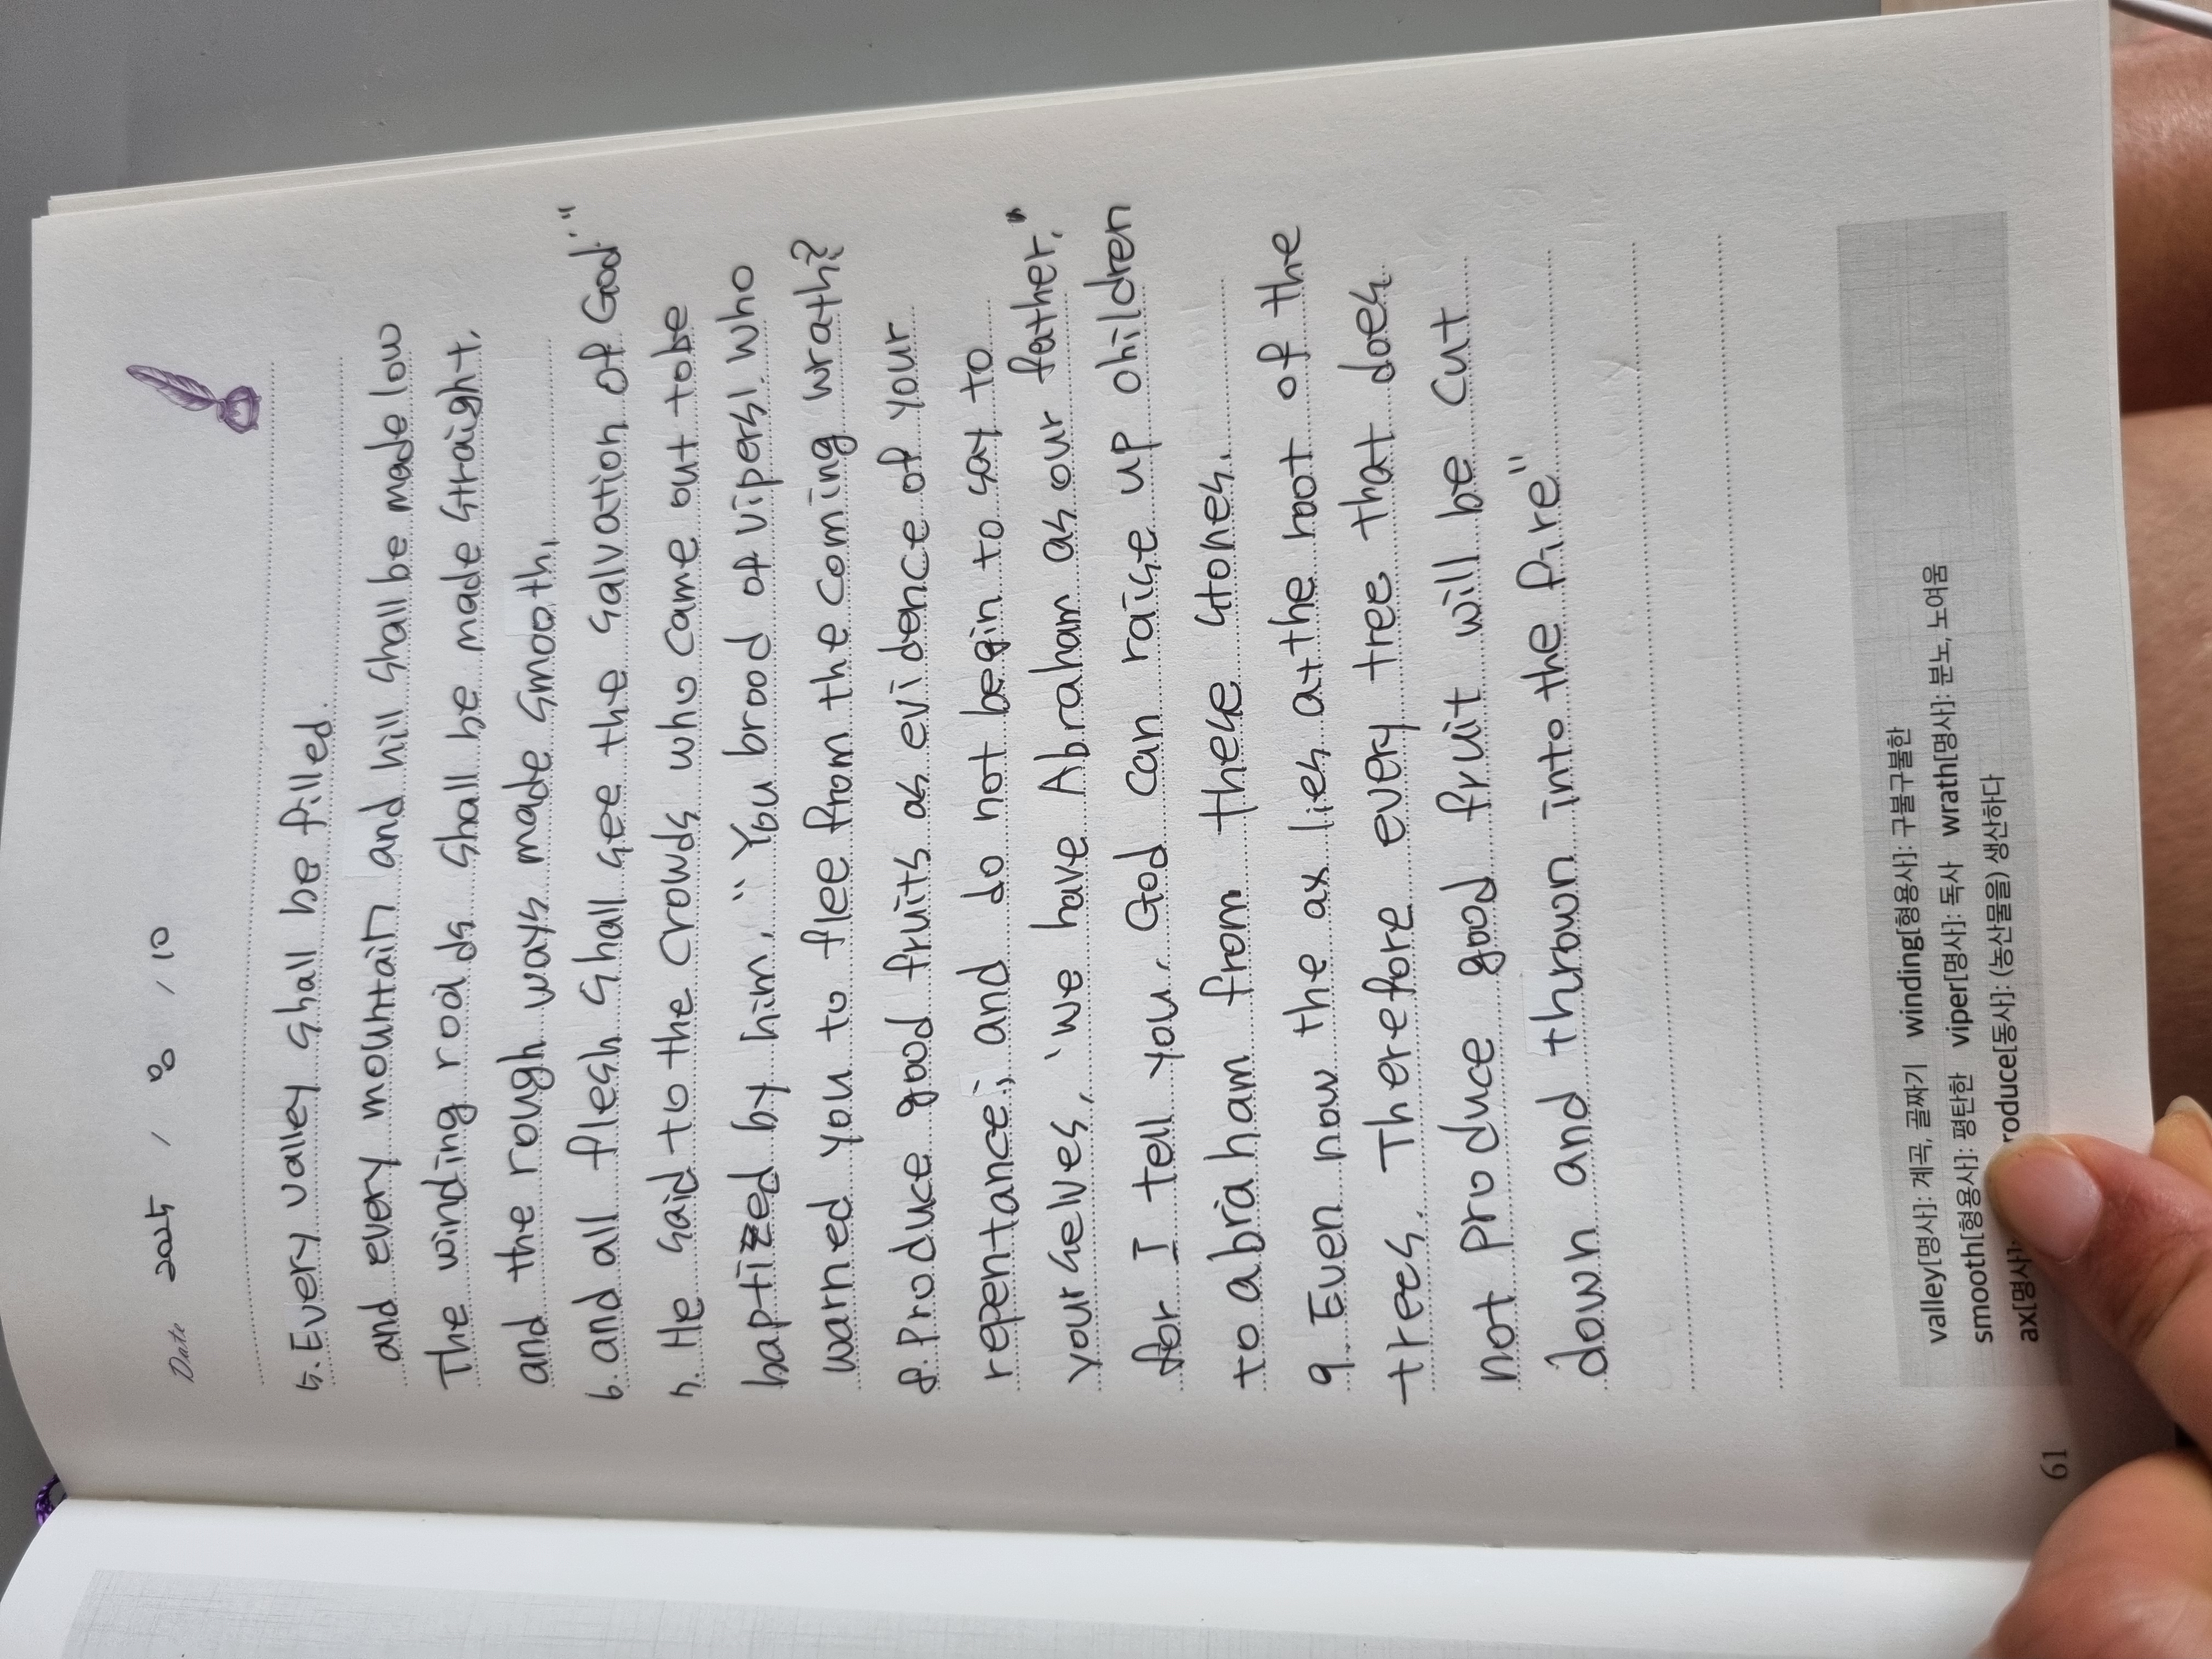 Date 2025 / 8 / 10
5. Every valley shall be filled.
and every mountain and hill shall be made low
The winding roads shall be made straight,
and the rough ways made smooth,
6. and all flesh shall see the salvation of God.'"
7. He said to the crowds who came out to be
baptized by him, "You brood of vipers! Who
warned you to flee from the coming wrath?
8. Produce good fruits as evidence of your
repentance; and do not begin to say to
yourselves, 'we have Abraham as our father,'
for I tell you, God can raise up children
to abraham from these stones.
9. Even now the ax lies at the root of the
trees. Therefore every tree that does
not produce good fruit will be cut
down and thrown into the fire"
valley[명사]: 계곡, 골짜기 winding[형용사]: 구불구불한
smooth[형용사]: 평탄한 viper[명사]: 독사 wrath[명사]: 분노, 노여움
ax[명사]: roduce[동사]: (농산물을) 생산하다
61